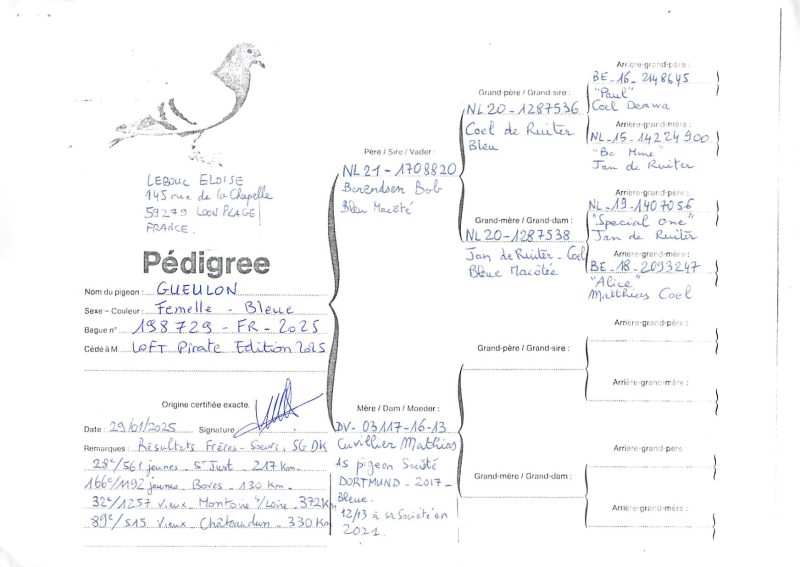 LEBOUC ELOISE
145 rue de la Chapelle
59279 LOON PLAGE
FRANCE.
Pédigree
Nom du pigeon : GUEULON
Sexe – Couleur : Femelle - Bleue
Bague n° 198729 - FR - 2025
Cédé à M. LOFT Pirate Edition 2025
Origine certifiée exacte.
Date : 29/01/2025 Signature
Remarques : Résultats Frères - Soeurs. SG DK
28e/561 jeunes St Just - 217 Km
166e/1192 jeunes Bores - 130 Km.
32e/1257 Vieux - Montoire s/Loire - 372Km
89e/515 Vieux - Châteaudun - 330 Km
Père / Sire / Vader :
NL21 - 1708820
Berendsen Bob
Bleu Macôté
Mère / Dam / Moeder :
DV- 03117-16-13
Cuvillier Matthias
as pigeon Société
DORTMUND - 2017 -
Bleue.
12/13 à sa Société en
2021.
Grand-père / Grand-sire :
NL20 - 1287536
Coel de Ruiter
Bleu
Grand-mère / Grand-dam :
NL20 - 1287538
Jan de Ruiter - Coel
Bleue Macôtée
Grand-père / Grand-sire :
Grand-mère / Grand-dam :
Arrière-grand-père :
BE - 16 - 2148645
"Paul"
Coel
Arrière-grand-mère :
NL - 15 - 14224900
"Be Mine"
Jan de Ruiter
Arrière-grand-père :
NL - 19 - 1407056
"Special One"
Jan de Ruiter
Arrière-grand-mère :
BE - 18 - 2093247
"Alice"
Matthias Coel
Arrière-grand-père :
Arrière-grand-mère :
Arrière-grand-père :
Arrière-grand-mère :